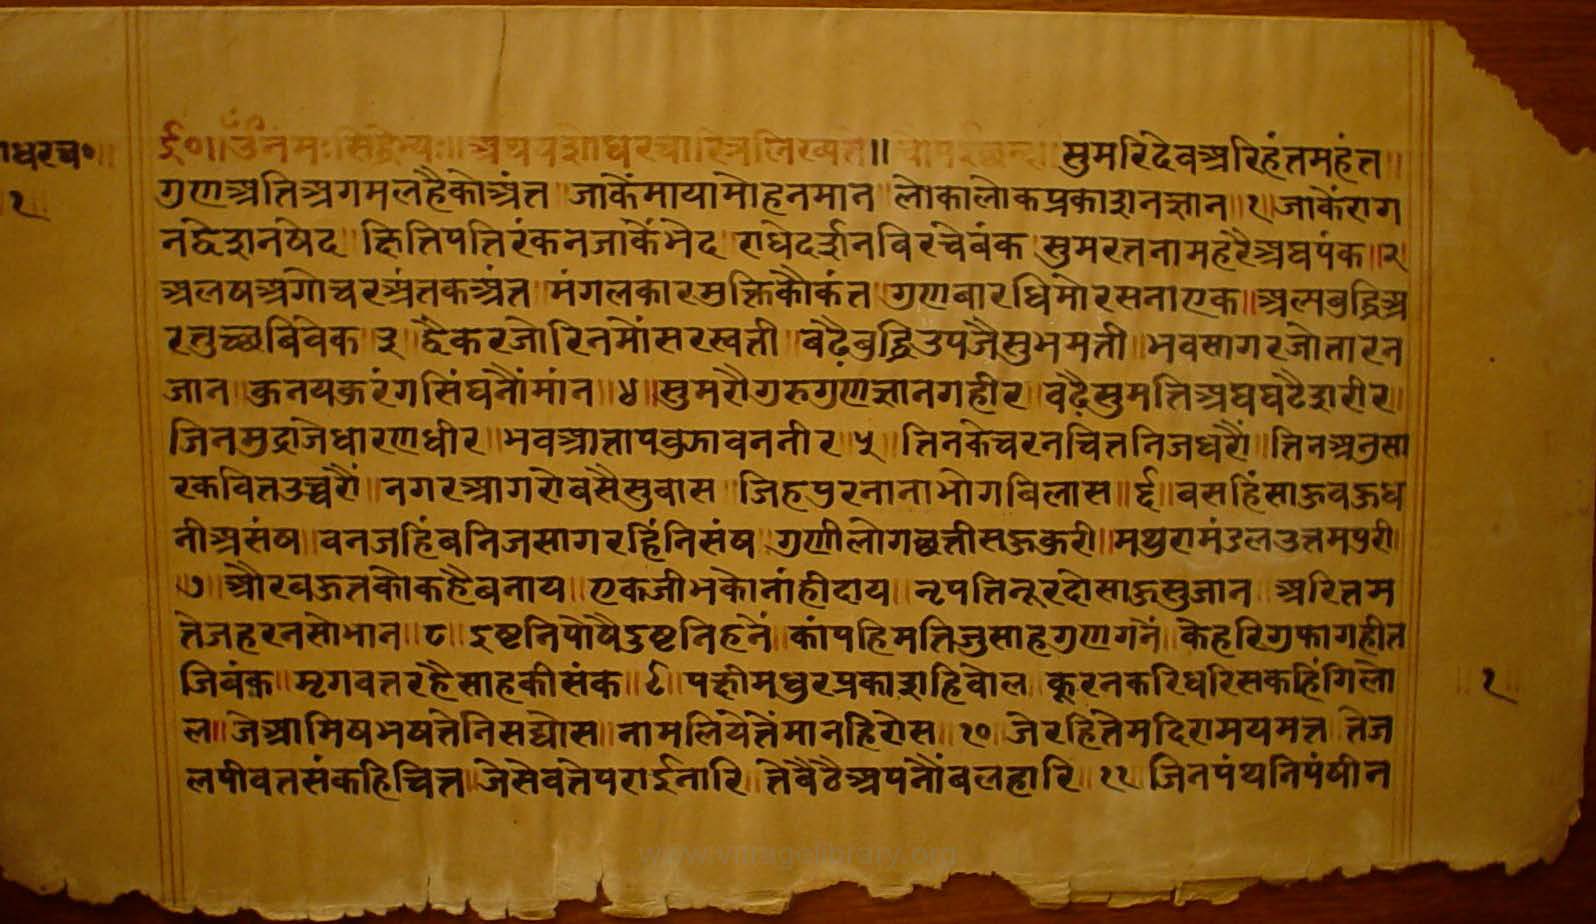 ाधरच०॥
१
र्द०॥ॐनमःसिद्धेभ्यः॥अथयशोधरचारित्रलिख्यते॥चौपईछन्द॥सुमरिदेवअरिहंतमहंत॥
गुणअतिअगमलहैकोअंत॥जाकेंमायामोहनमान॥लोकालोकप्रकाशनज्ञान॥१॥जाकेंराग
नद्वेशनषेद॥क्षितिपतिरंकनजाकेंभेद॥राधेदर्शनबिरचेबंक॥सुमरतनामहरैअघपंक॥२॥
अलषअगोचरअंतकअंत॥मंगलकारमुक्तिकौकंत॥गुणबारधिमोरसनाएक॥अल्पबुद्धिअ
रतुच्छबिवेक॥३॥द्वैकरजोरिनमौंसरस्वती॥बढैबुद्धिउपजैसुभमती॥भवसागरजोतारन
जान॥कुनयकुरंगसिंघनौंमांन॥४॥सुमरौगुरुगुंणज्ञानगहीर॥बढैसुमतिअघघटैशरीर॥
जिनमुद्राजेधारणधीर॥भवआतापबुझावननीर॥५॥तिनकेचरनचितनिजधरौं॥तिनअनुसा
रकवितउच्चरौं॥नगरआगरोबसैसुबास॥जिहपुरनानाभोगबिलास॥६॥बसहिंसाऊबऊध
नीअसंष॥बनजहिंबनिजसागरहिंनिसंष॥गुणीलोगछत्तीसऊकुरी॥मथुरामंडलउत्तमपुरी॥
७॥औरबऊतकोकहैबनाय॥एकजीभकौनांहीदाय॥नृपतिनूरदीसाऊसुजान॥अरितम
तेजहरनसोभान॥८॥इष्टनिपोषैदुष्टनिहनें॥कांपहिमतिजुसाहगुणगनें॥केहरिगुफागहीत
जिबंक॥मृगवतरहैसाहकीसंक॥९॥पक्षीमधुरप्रकाशहिबोल॥कूरनकरिधरिसकहिंगिलो
ल॥जेआमिषभषतेनिसद्यौस॥नामलियेतेंमानहिरोस॥१०॥जेरहितेमदिरामयमत्त॥तेज
लपीवतसंकहिचित्त॥जेसेवतेपराईनारि॥तेबैठैअपनौंबलहारि॥११॥जिनपंथनिपंषीन
१
www.vitragelibrary.org